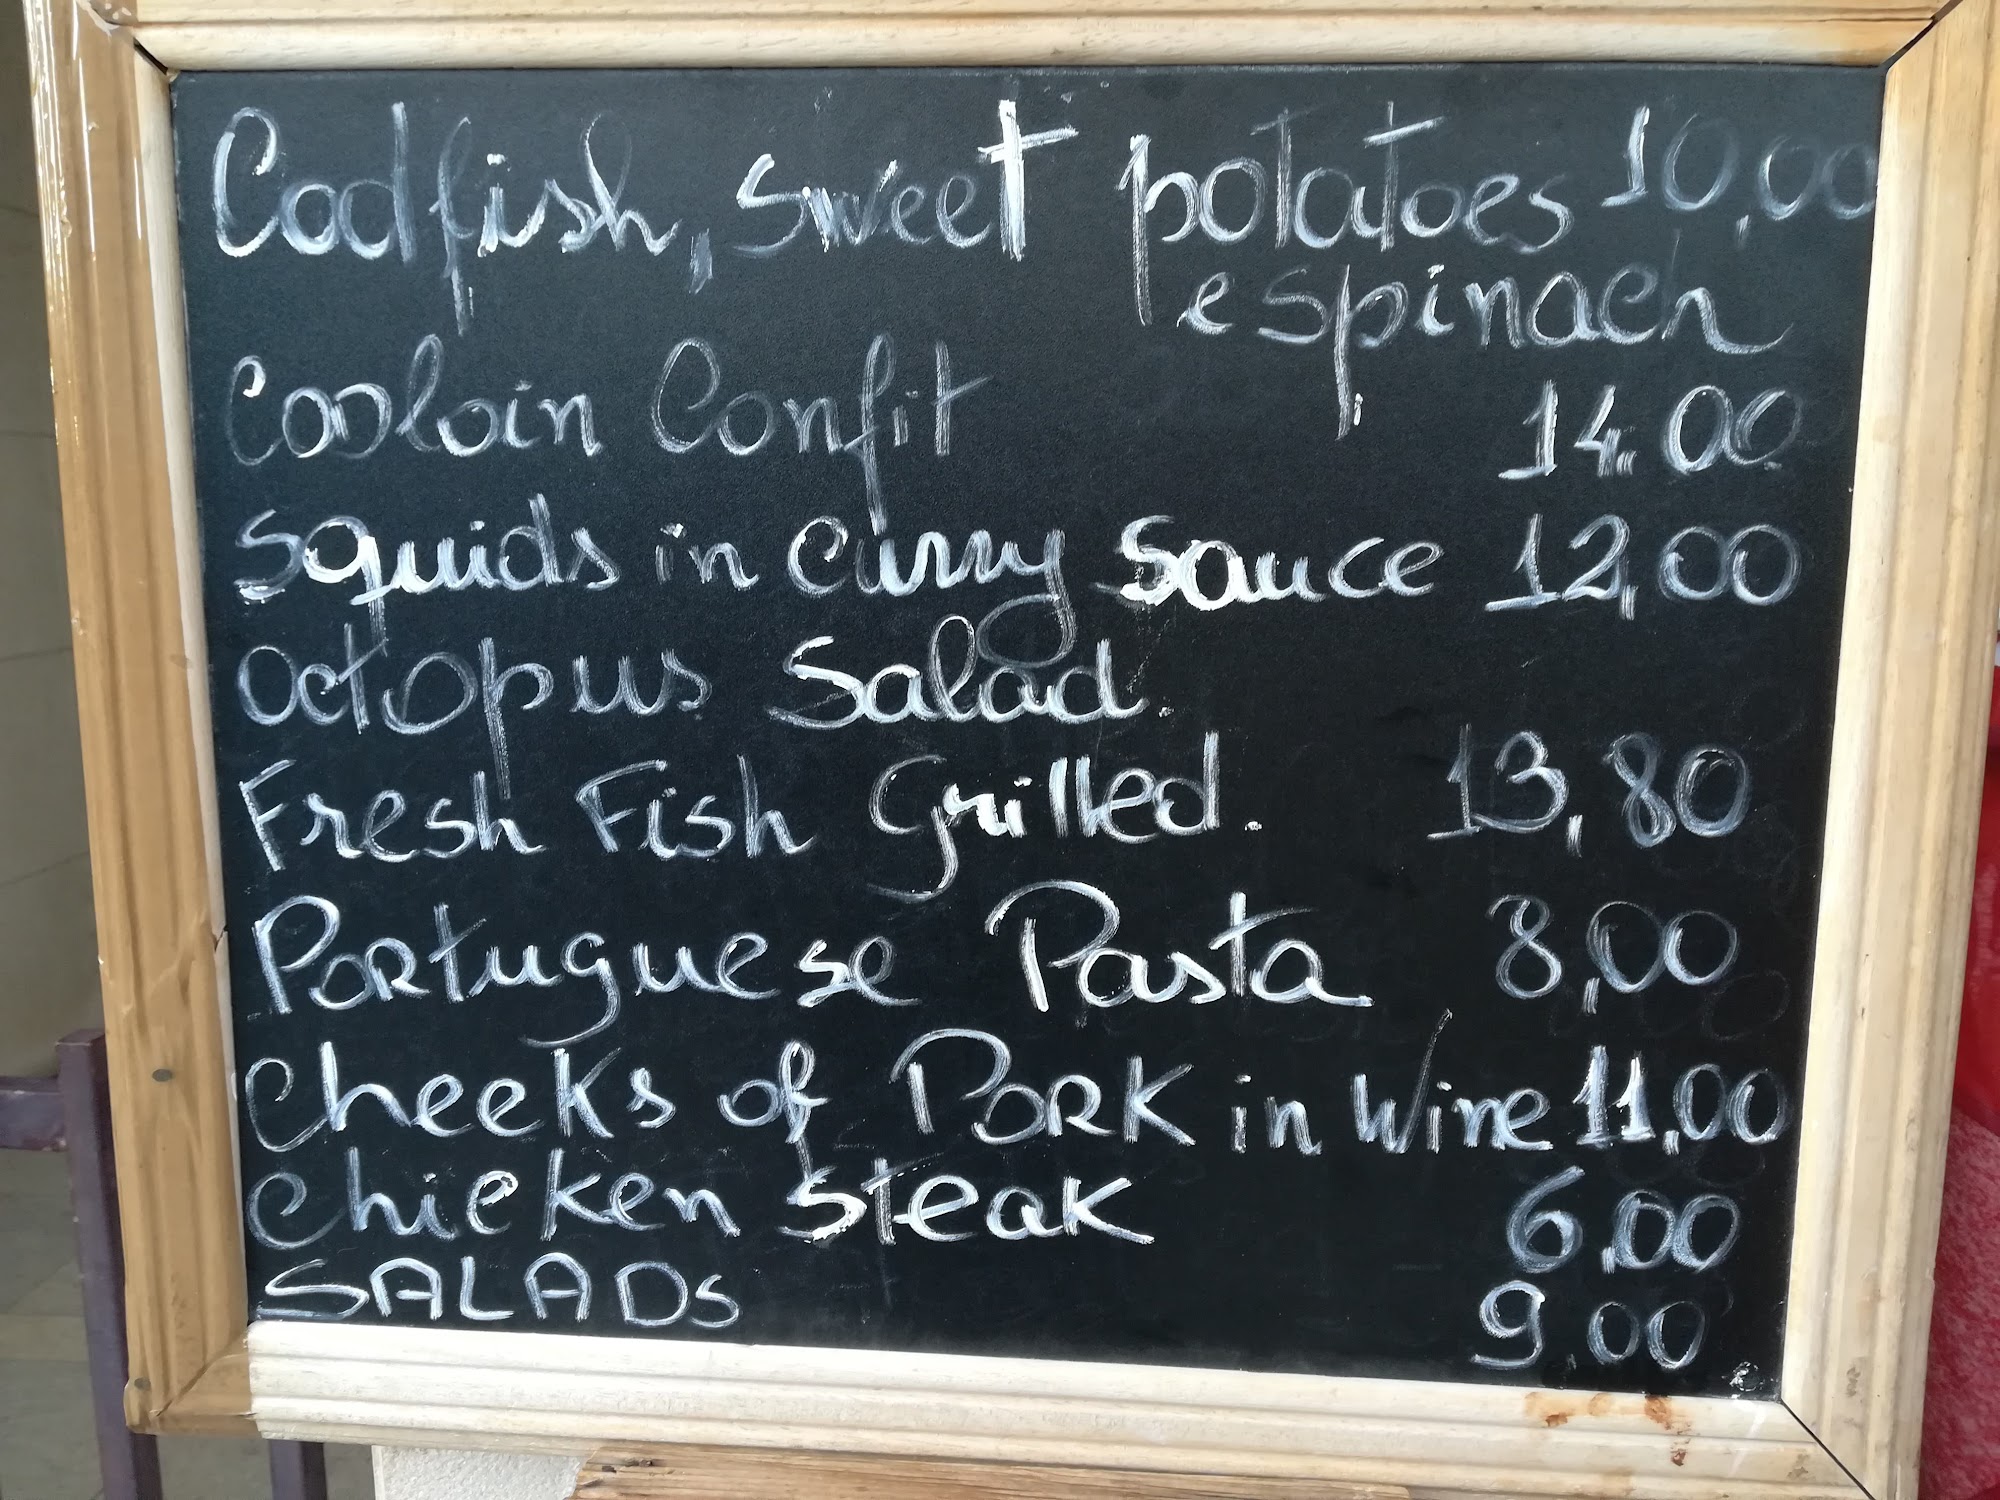 Codfish, Sweet potatoes 10,00
e spinach
Codloin Confit 14.00
Squids in Curry Sauce 12,00
Octopus Salad.
Fresh Fish Grilled. 13,80
Portuguese Pasta 8,00
Cheeks of Pork in Wine 11,00
Chicken Steak 6,00
SALADs 9,00